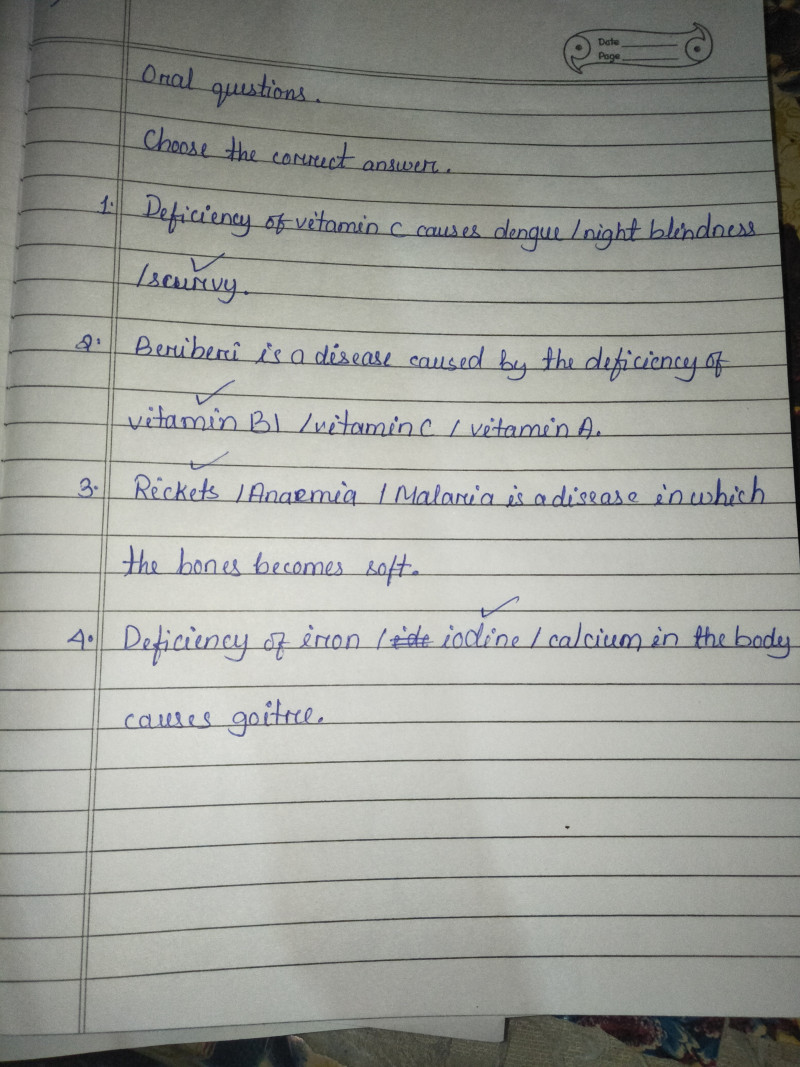 Date
Page
Oral questions.
Choose the correct answer.
1. Deficiency of vitamin C causes dengue / night blindness
/ scurvy.
2. Beriberi is a disease caused by the deficiency of
vitamin B1 / vitamin C / vitamin A.
3. Rickets / Anaemia / Malaria is a disease in which
the bones becomes soft.
4. Deficiency of iron / iodine / calcium in the body
causes goitre.